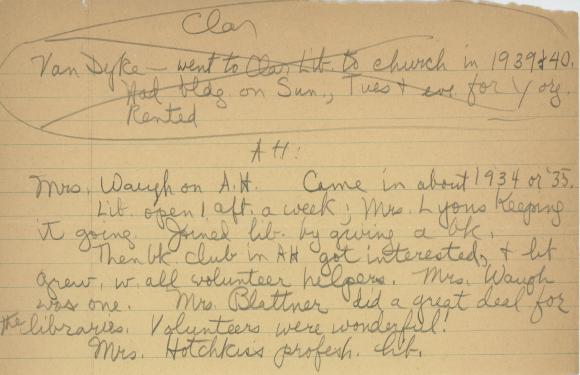 Clar
Van Dyke — went to Clar. Lib. to church in 1939 & 40.
Had bldg. on Sun., Tues + eve for Y org.
Rented
AH:
Mrs. Waugh on A.H. Came in about 1934 or '35.
Lib. open 1 aft. a week; Mrs. Lyons keeping
it going. Joined lib. by giving a bk.
Then bk club in AH got interested, & lib
grew, w. all volunteer helpers. Mrs. Waugh
was one. Mrs. Blattner did a great deal for
the libraries. Volunteers were wonderful!
Mrs. Hotchkiss profesh. lib.